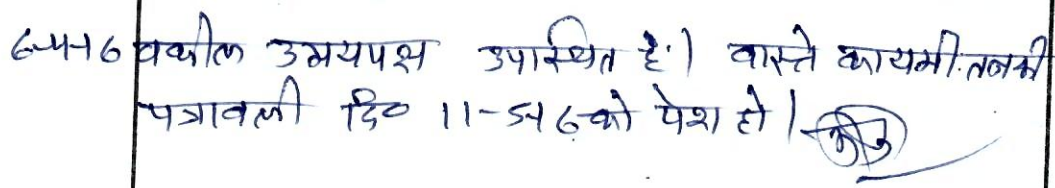 6-4-16 वकील उभयपक्ष उपस्थित है। वास्ते कायमी तनकी
पत्रावली दि० 11-5-16 को पेश हो।